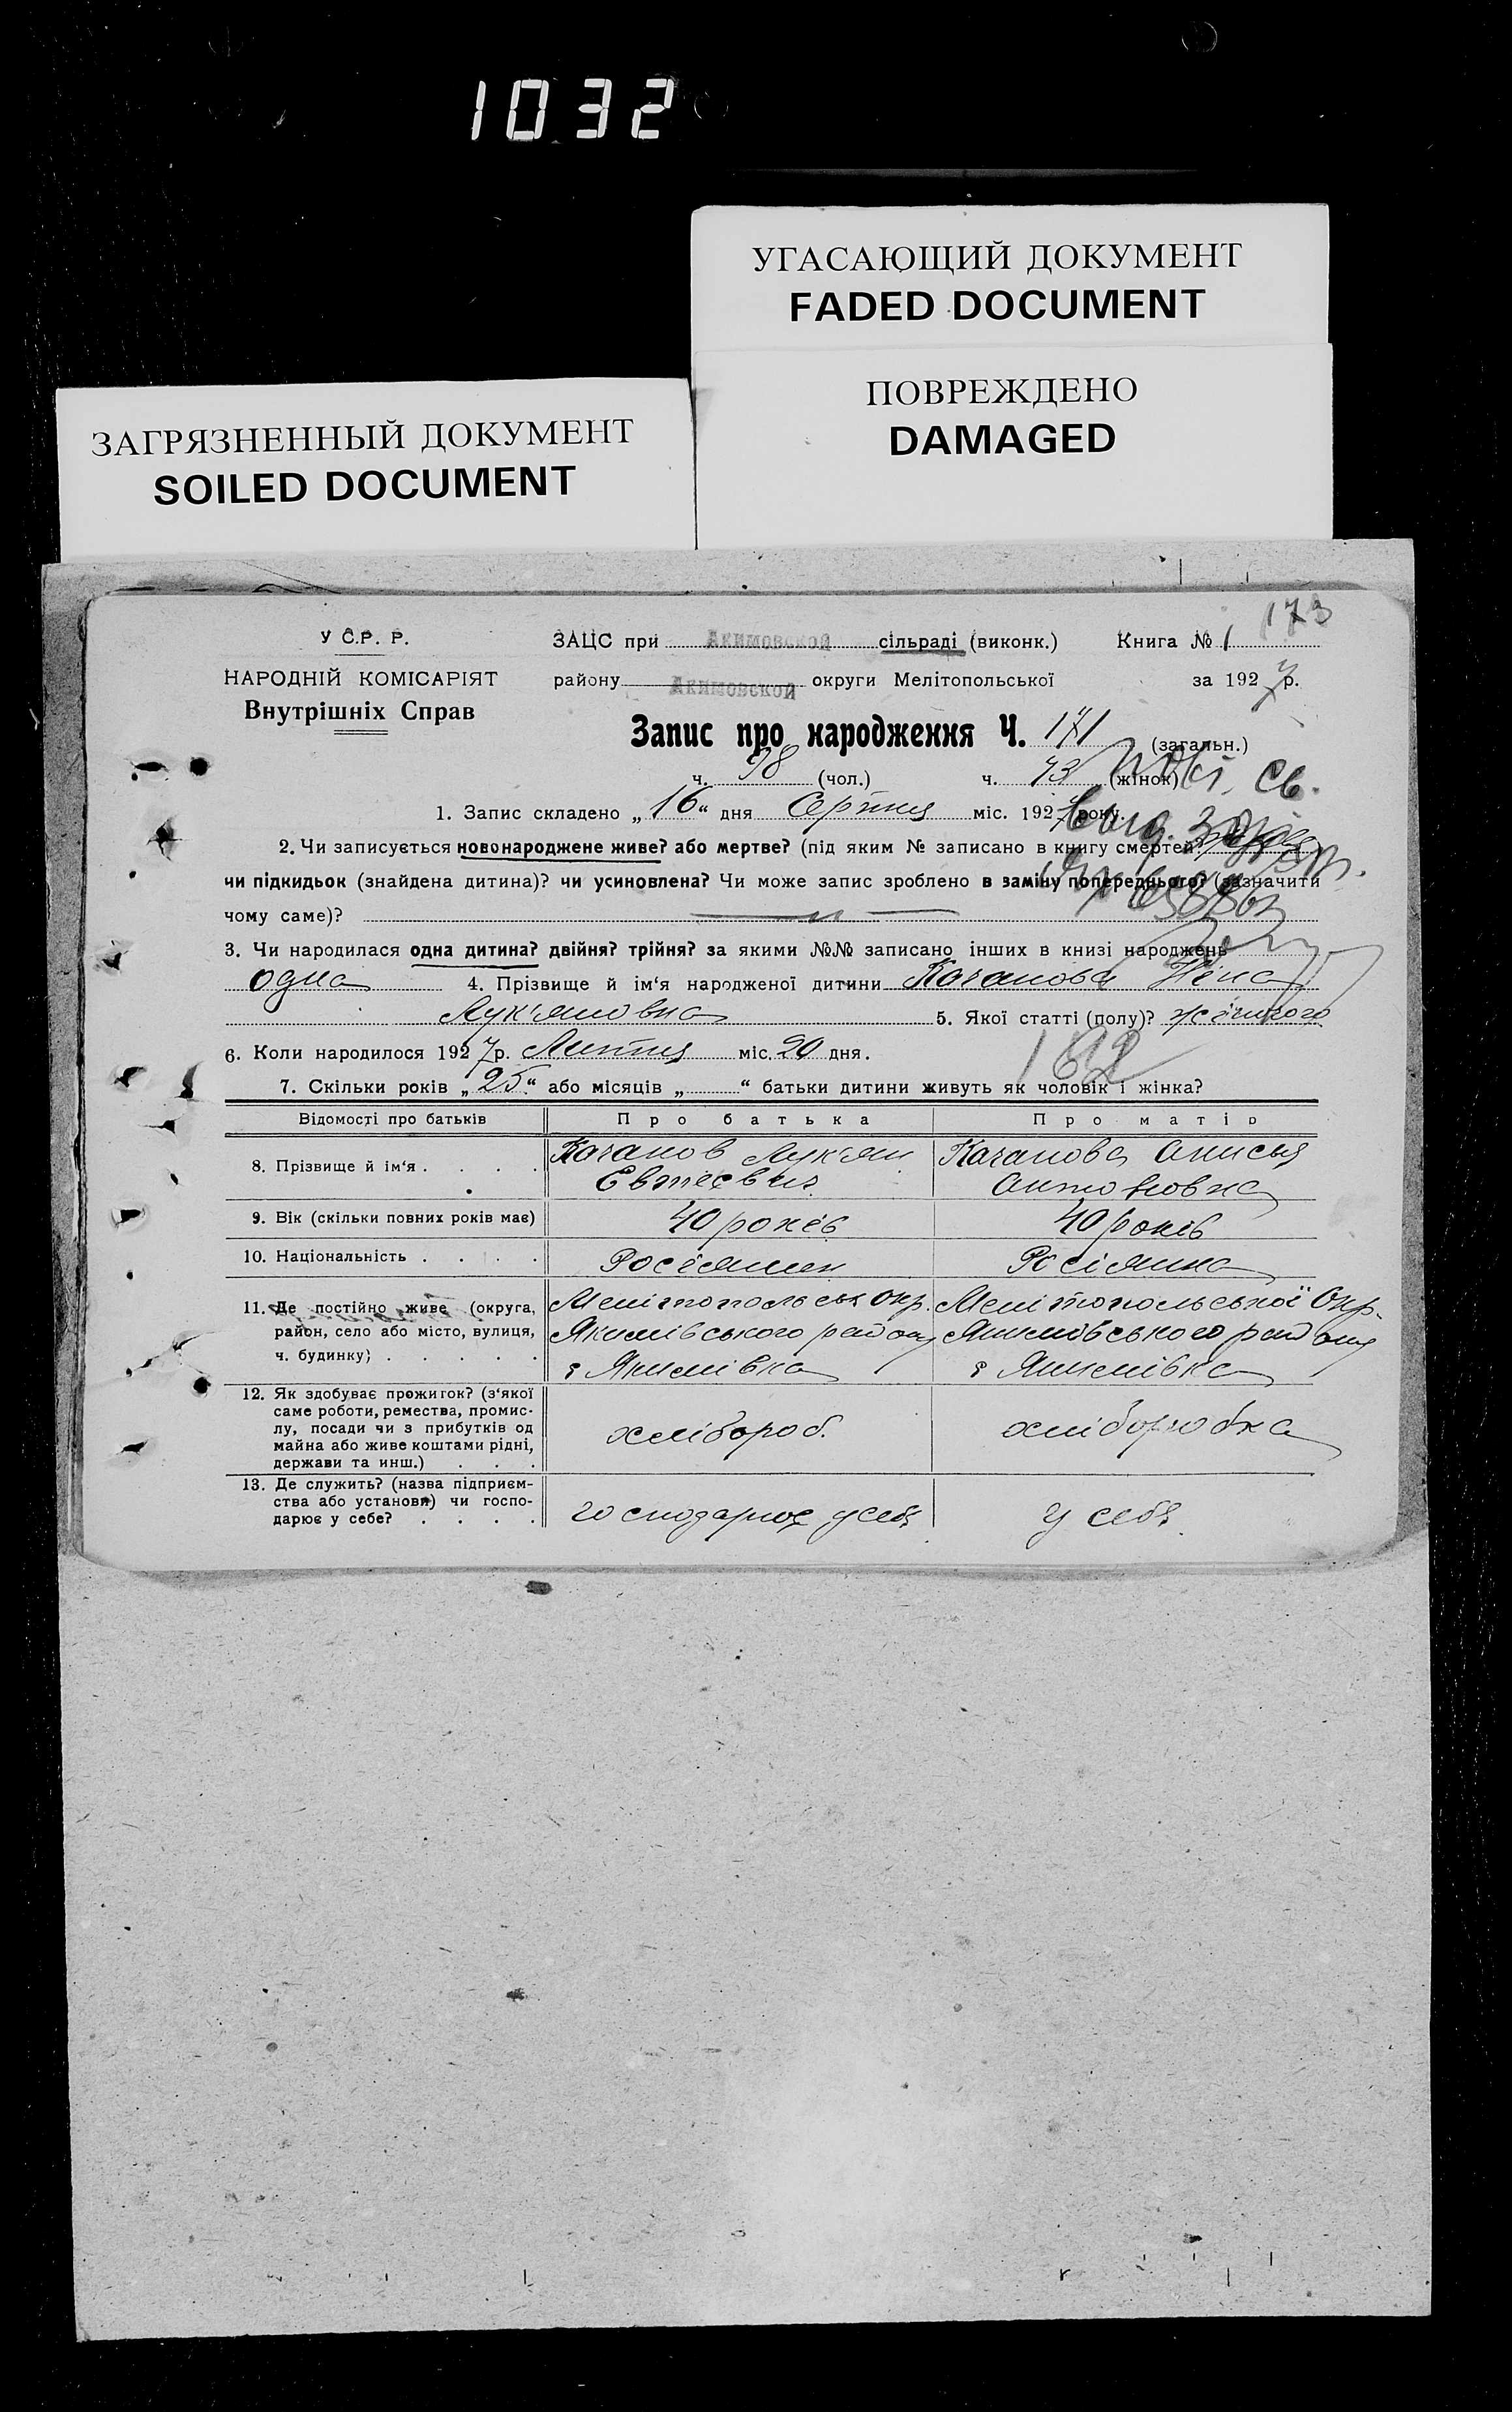 1032
УГАСАЮЩИЙ ДОКУМЕНТ
FADED DOCUMENT
ПОВРЕЖДЕНО
DAMAGED
ЗАГРЯЗНЕННЫЙ ДОКУМЕНТ
SOILED DOCUMENT
173
У С.Р. Р.
НАРОДНІЙ КОМІСАРІЯТ
Внутрішніх Справ
ЗАЦС при Акимовской сільраді (виконк.) Книга № 1
району Акимовской округи Мелітопольської за 1927 р.
Запис про народження Ч. 171 (загальн.)
ч. 98 (чол.) ч. 73 (жінок)
1. Запис складено „16“ дня Серпня міс. 1927 року.
2. Чи записується новонароджене живе? або мертве? (під яким № записано в книгу смертей)
чи підкидьок (знайдена дитина)? чи усиновлена? Чи може запис зроблено в заміну попереднього? (зазначити
чому саме)?
3. Чи народилася одна дитина? двійня? трійня? за якими №№ записано інших в книзі народжень
одна 4. Прізвище й ім'я народженої дитини Качанова Ніна
Лук'яновна 5. Якої статті (полу)? жіночого
6. Коли народилося 1927 р. Липня міс. 20 дня.
162
7. Скільки років „25“ або місяців „ “ батьки дитини живуть як чоловік і жінка?
Відомості про батьків Про батька Про матір
8. Прізвище й ім'я . . . . Качанов Лук'ян Качанова Анисья
Евтіевич Антоновна
9. Вік (скільки повних років має) 40 років 40 років
10. Національність . . . . Росіянин Росіянка
11. Де постійно живе (округа, Мелітопольськ Окр. Мелітопольської Окр.
район, село або місто, вулиця, Якимівського району Якимовського району
ч. будинку) . . . . . с Якимівка с Якимівка
12. Як здобуває прожиток? (з'якої
саме роботи, ремества, промис-
лу, посади чи з прибутків од
майна або живе коштами рідні,
держави та инш.) . . . хлібороб. хліборобка
13. Де служить? (назва підприєм-
ства або установи) чи госпо-
дарює у себе? . . . . господарює у себя у себя